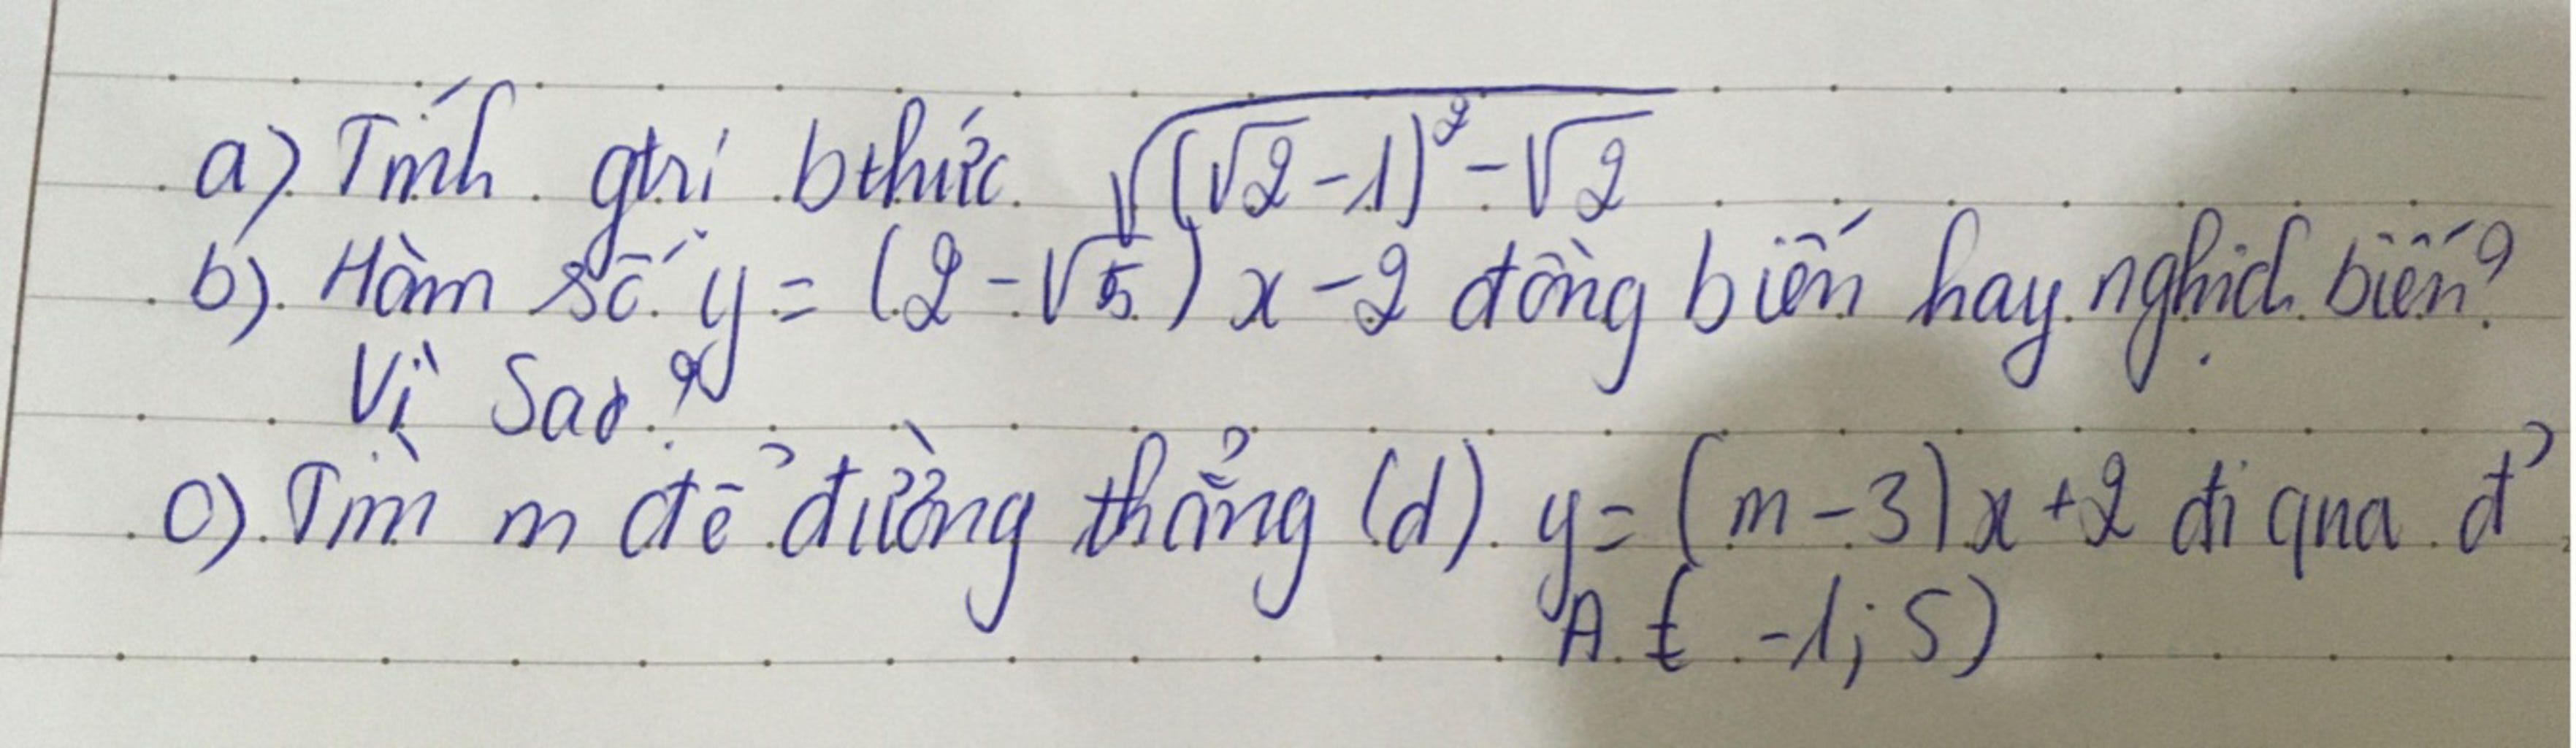 a) Tính gtrị bthức √((√2-1)² - √2)
b) Hàm số y = (2 - √5) x - 2 đồng biến hay nghịch biến?
Vì Sao?
c) Tìm m để đường thẳng (d) y = (m - 3) x + 2 đi qua đ'
A ( -1; 5)